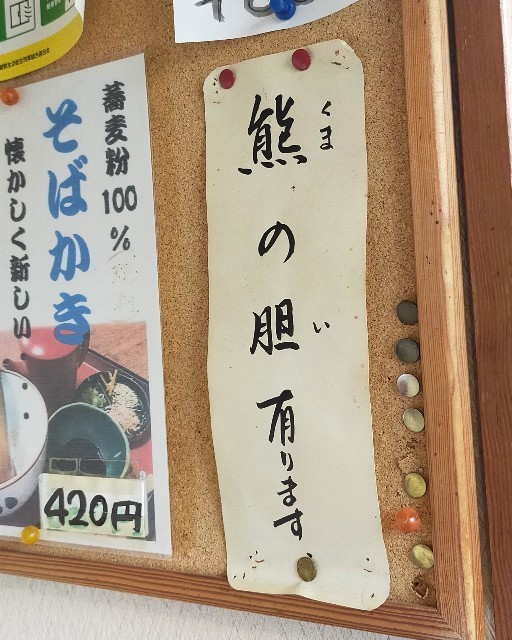 熊の胆有ります
くま
い
蕎麦粉100%
そばかき
懐かしく新しい
420円